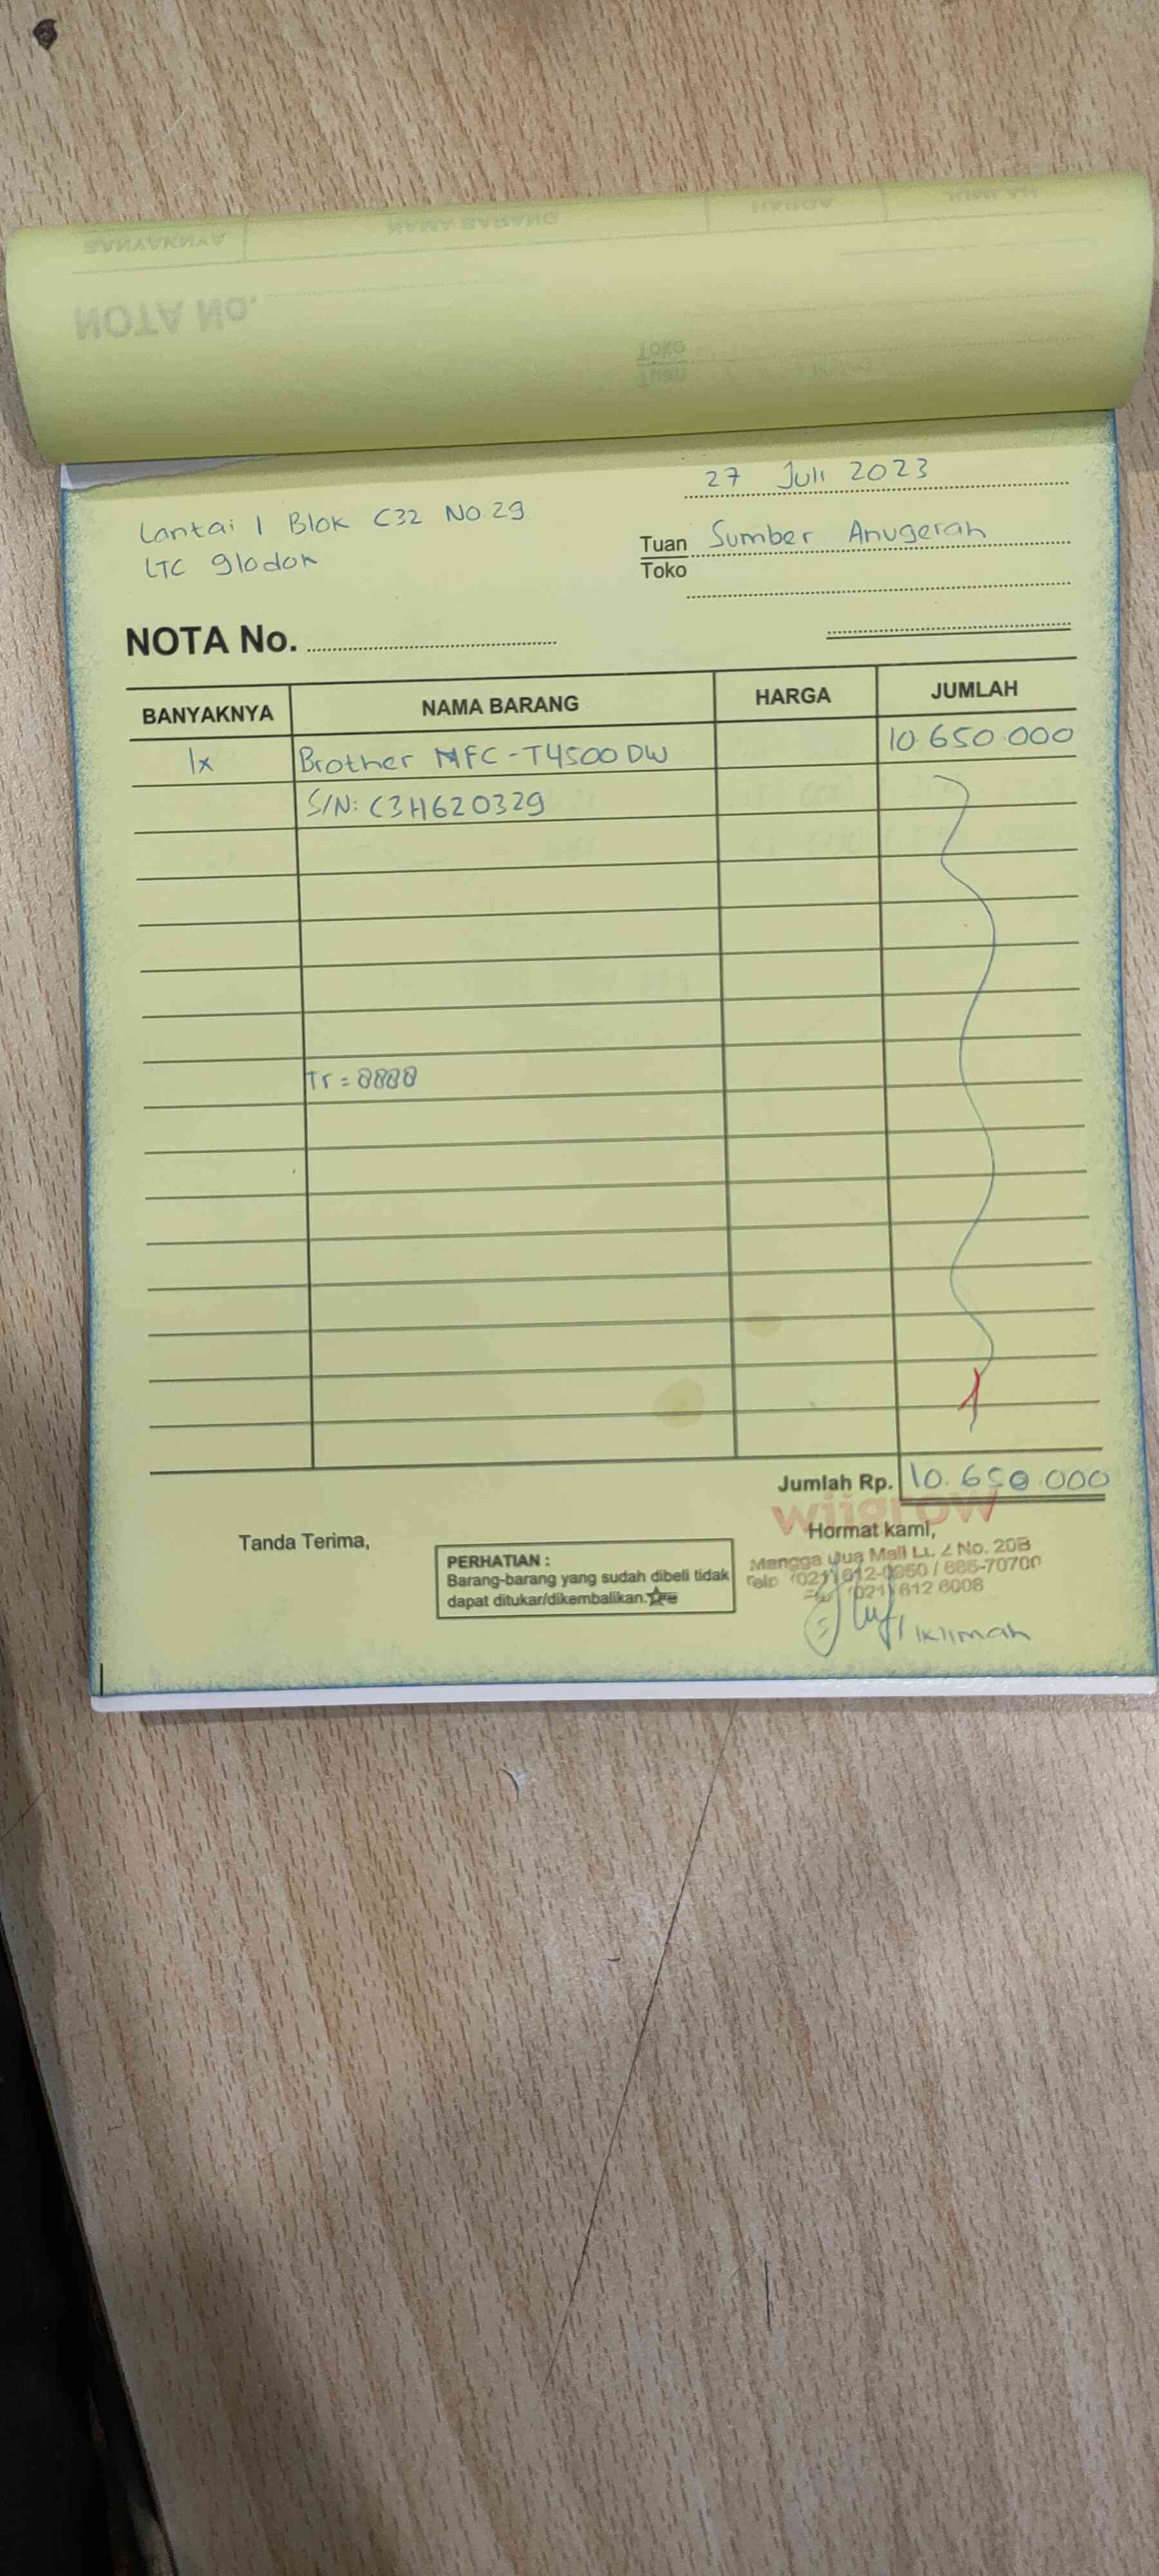 27 Juli 2023
Lantai 1 Blok C32 No.29
LTC glodok
Tuan
Toko
Sumber Anugerah
NOTA No.
BANYAKNYA NAMA BARANG HARGA JUMLAH
1x Brother MFC-T4500DW 10.650.000
S/N: C3H620329
Tr =
Jumlah Rp. 10.650.000
wiigrow
Tanda Terima, Hormat kami,
PERHATIAN :
Barang-barang yang sudah dibeli tidak
dapat ditukar/dikembalikan.
Mangga Dua Mall Lt. 2 No. 20B
Telp (021) 612-0950 / 686-70700
(021) 612 6008
Iklimah